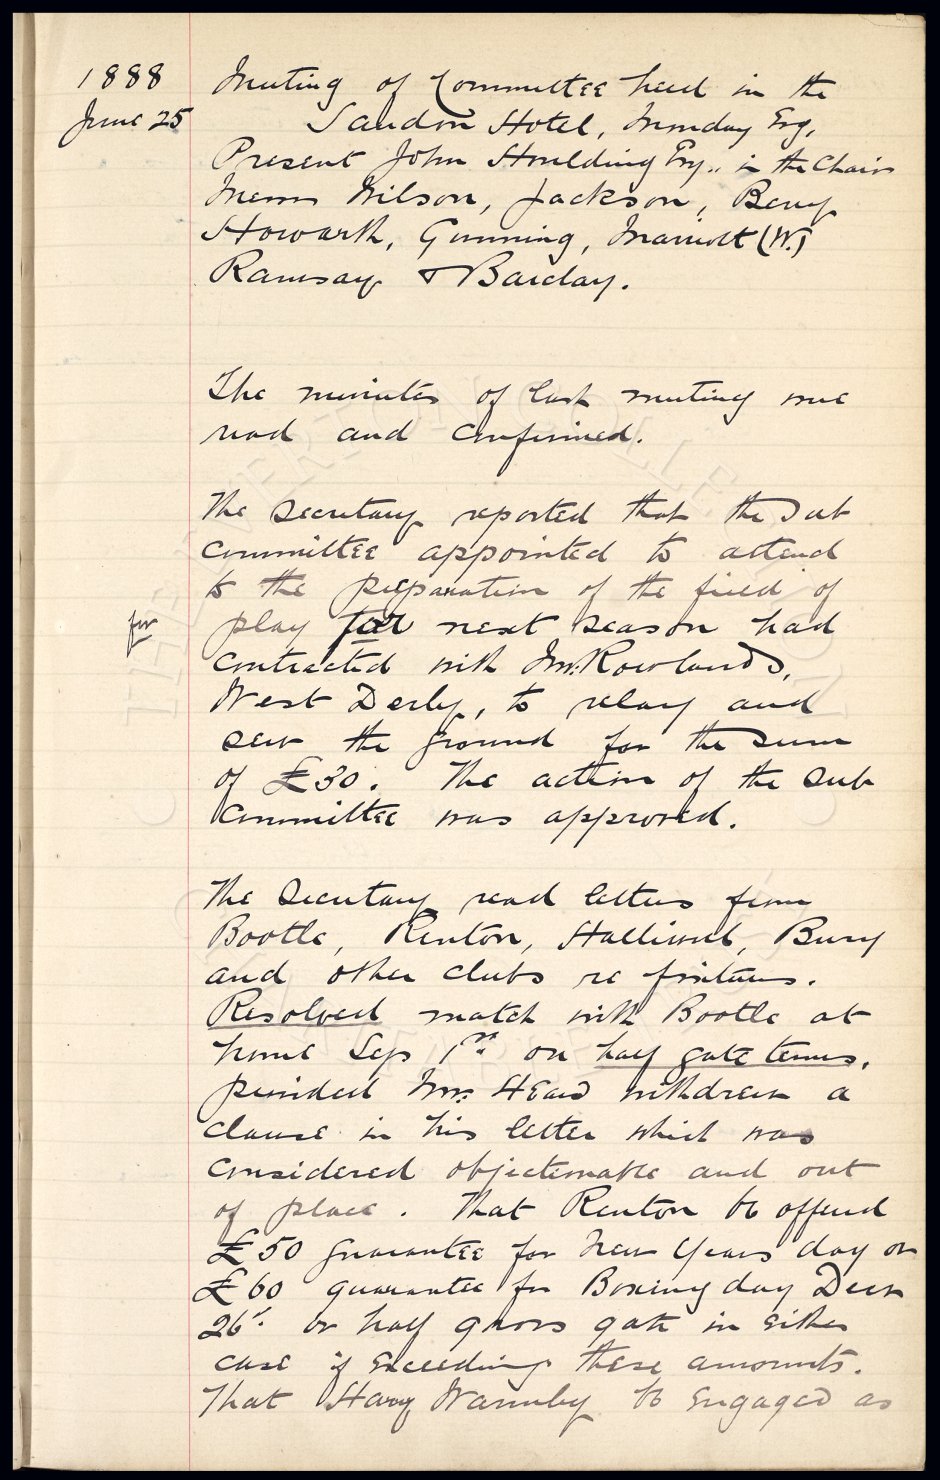 1888
June 25
Meeting of Committee held in the
Sandon Hotel, Monday Evg,
Present John Houlding Esq., in the Chair
Messrs Wilson, Jackson, Berry
Howarth, Gunning, Marriott (W.)
Ramsay & Barclay.
The minutes of last meeting were
read and confirmed.
The Secretary reported that the Sub
Committee appointed to attend
to the preparation of the field of
for
play for next season had
contracted with Mr. Rowlands,
West Derby, to relay and
sew the ground for the sum
of £30. The action of the Sub
Committee was approved.
The Secretary read letters from
Bootle, Renton, Halliwell, Bury
and other clubs re fixtures.
Resolved match with Bootle at
home Sep 1st on half gate terms,
provided Mr. Head withdrew a
clause in his letter which was
considered objectionable and out
of place. That Renton be offered
£50 guarantee for New Years day or
£60 guarantee for Boxing day Decr
26th or half gross gate in either
case if exceeding these amounts.
That Harry Warmby be engaged as